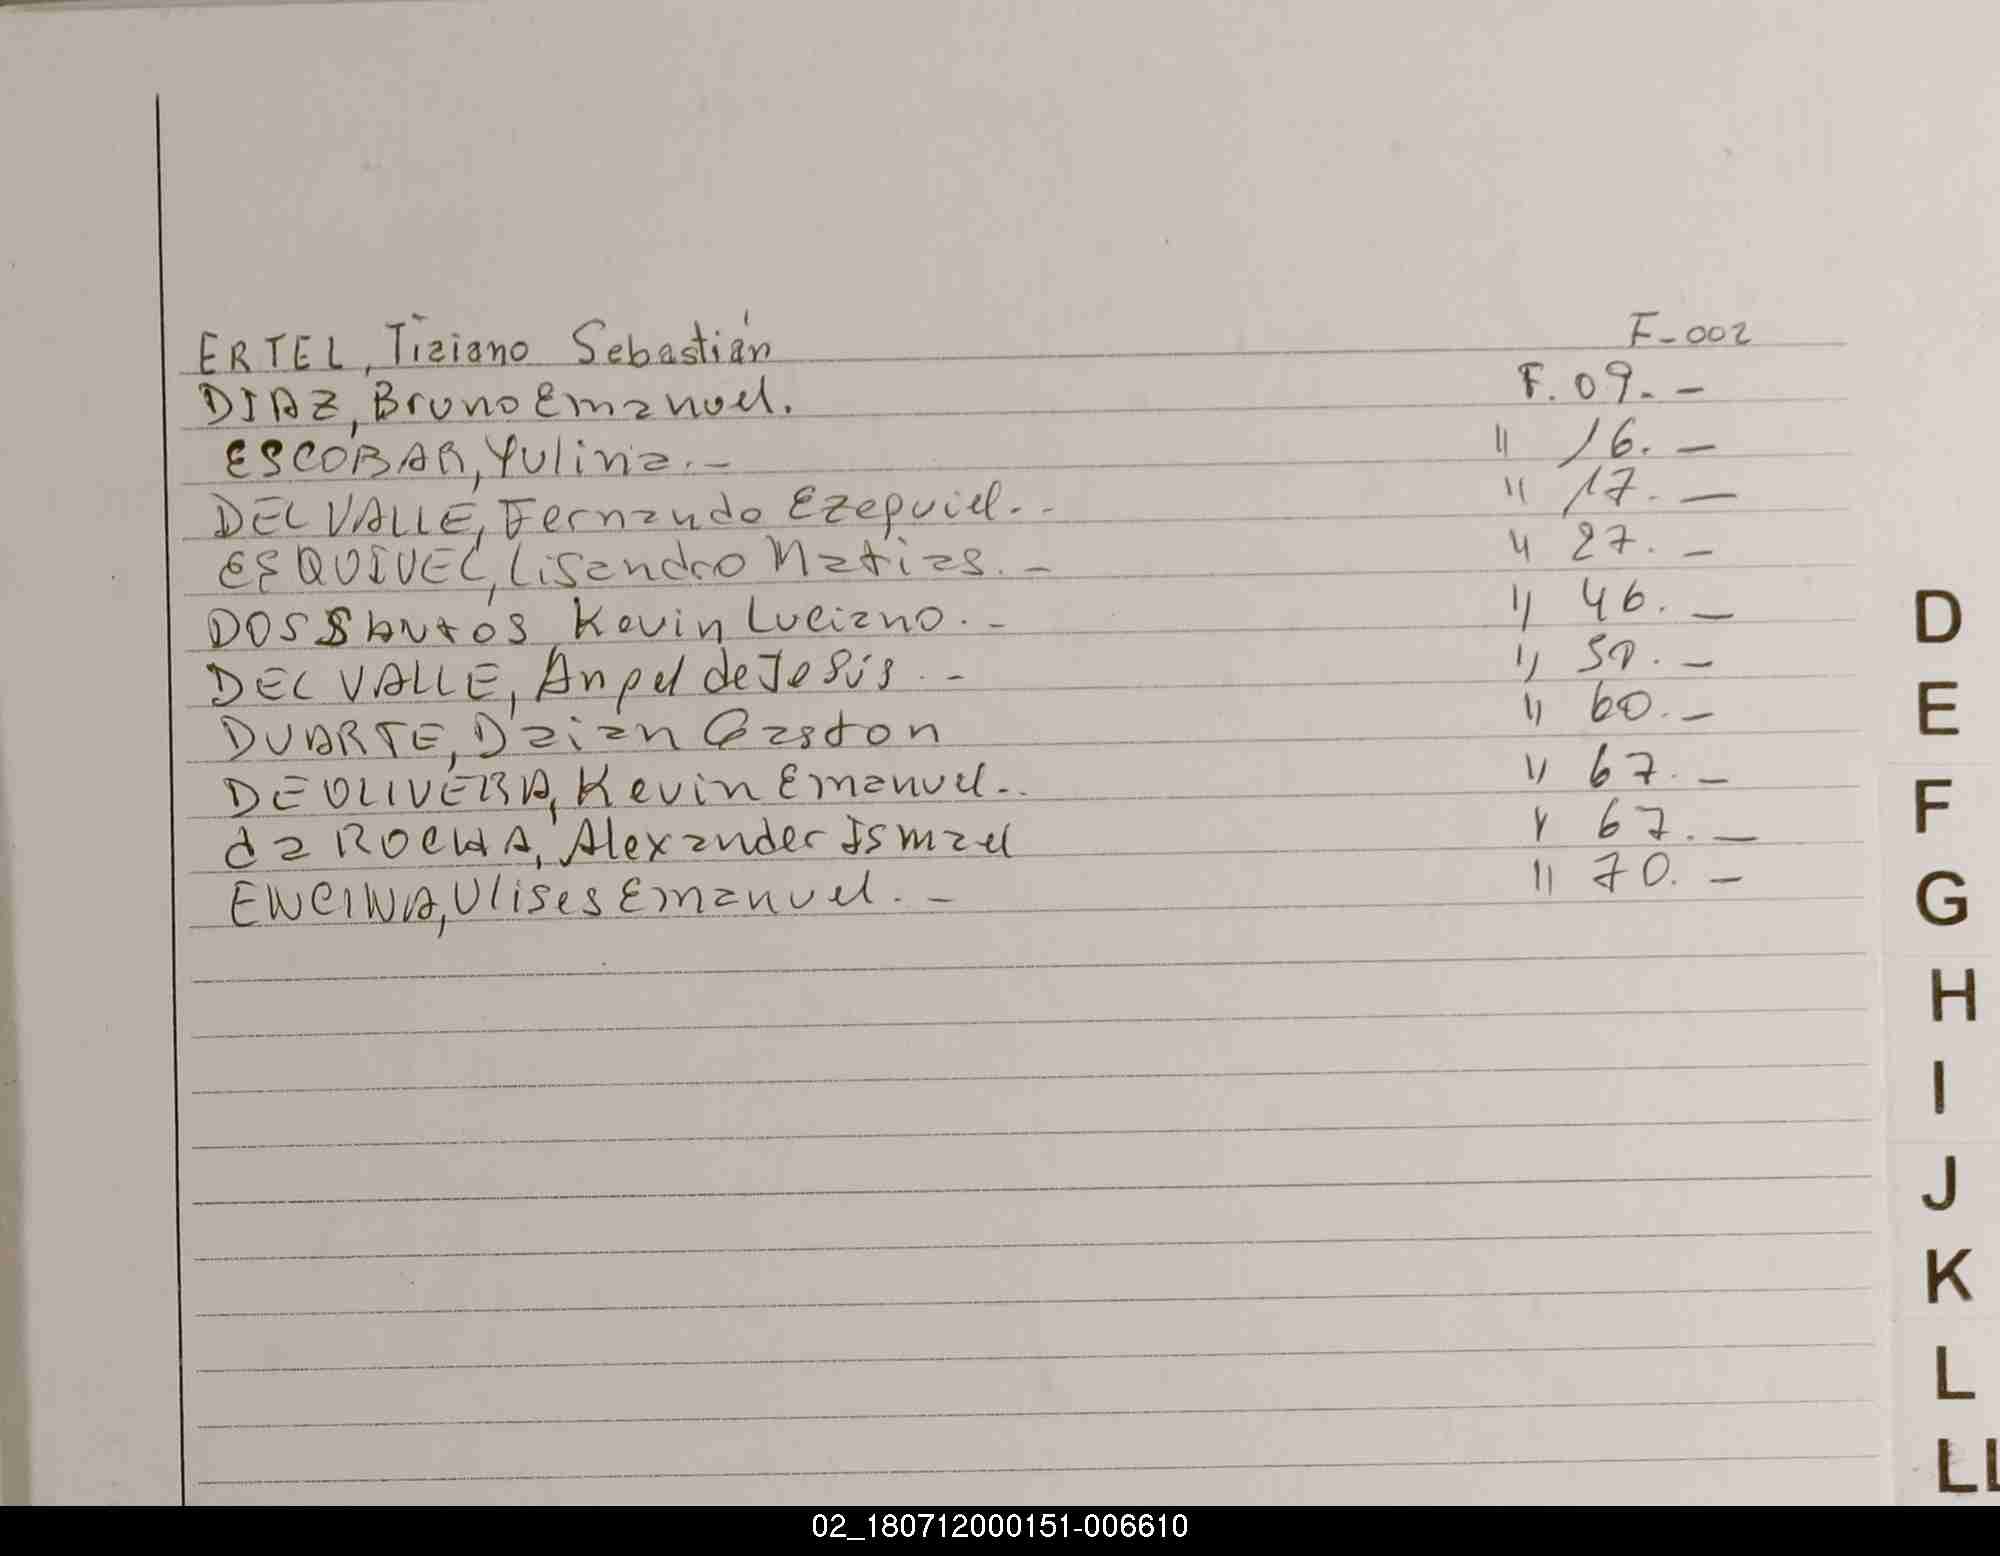 ERTEL, Tiziano Sebastián F-002
DIAZ, Bruno Emanuel. F. 09. -
ESCOBAR, Yulina. - " 16. -
DEL VALLE, Fernando Ezequiel. - " 17. -
ESQUIVEL, Lisandro Matias. - " 27. -
DOS SANTOS, Kevin Luciano. - " 46. -
DEL VALLE, Angel de Jesús. - " 50. -
DUARTE, Daian Gaston " 60. -
DE OLIVERA, Kevin Emanuel. - " 67. -
da ROCHA, Alexander Ismael " 67. -
ENCINA, Ulises Emanuel. - " 70. -
D
E
F
G
H
I
J
K
L
LL
02_180712000151-006610